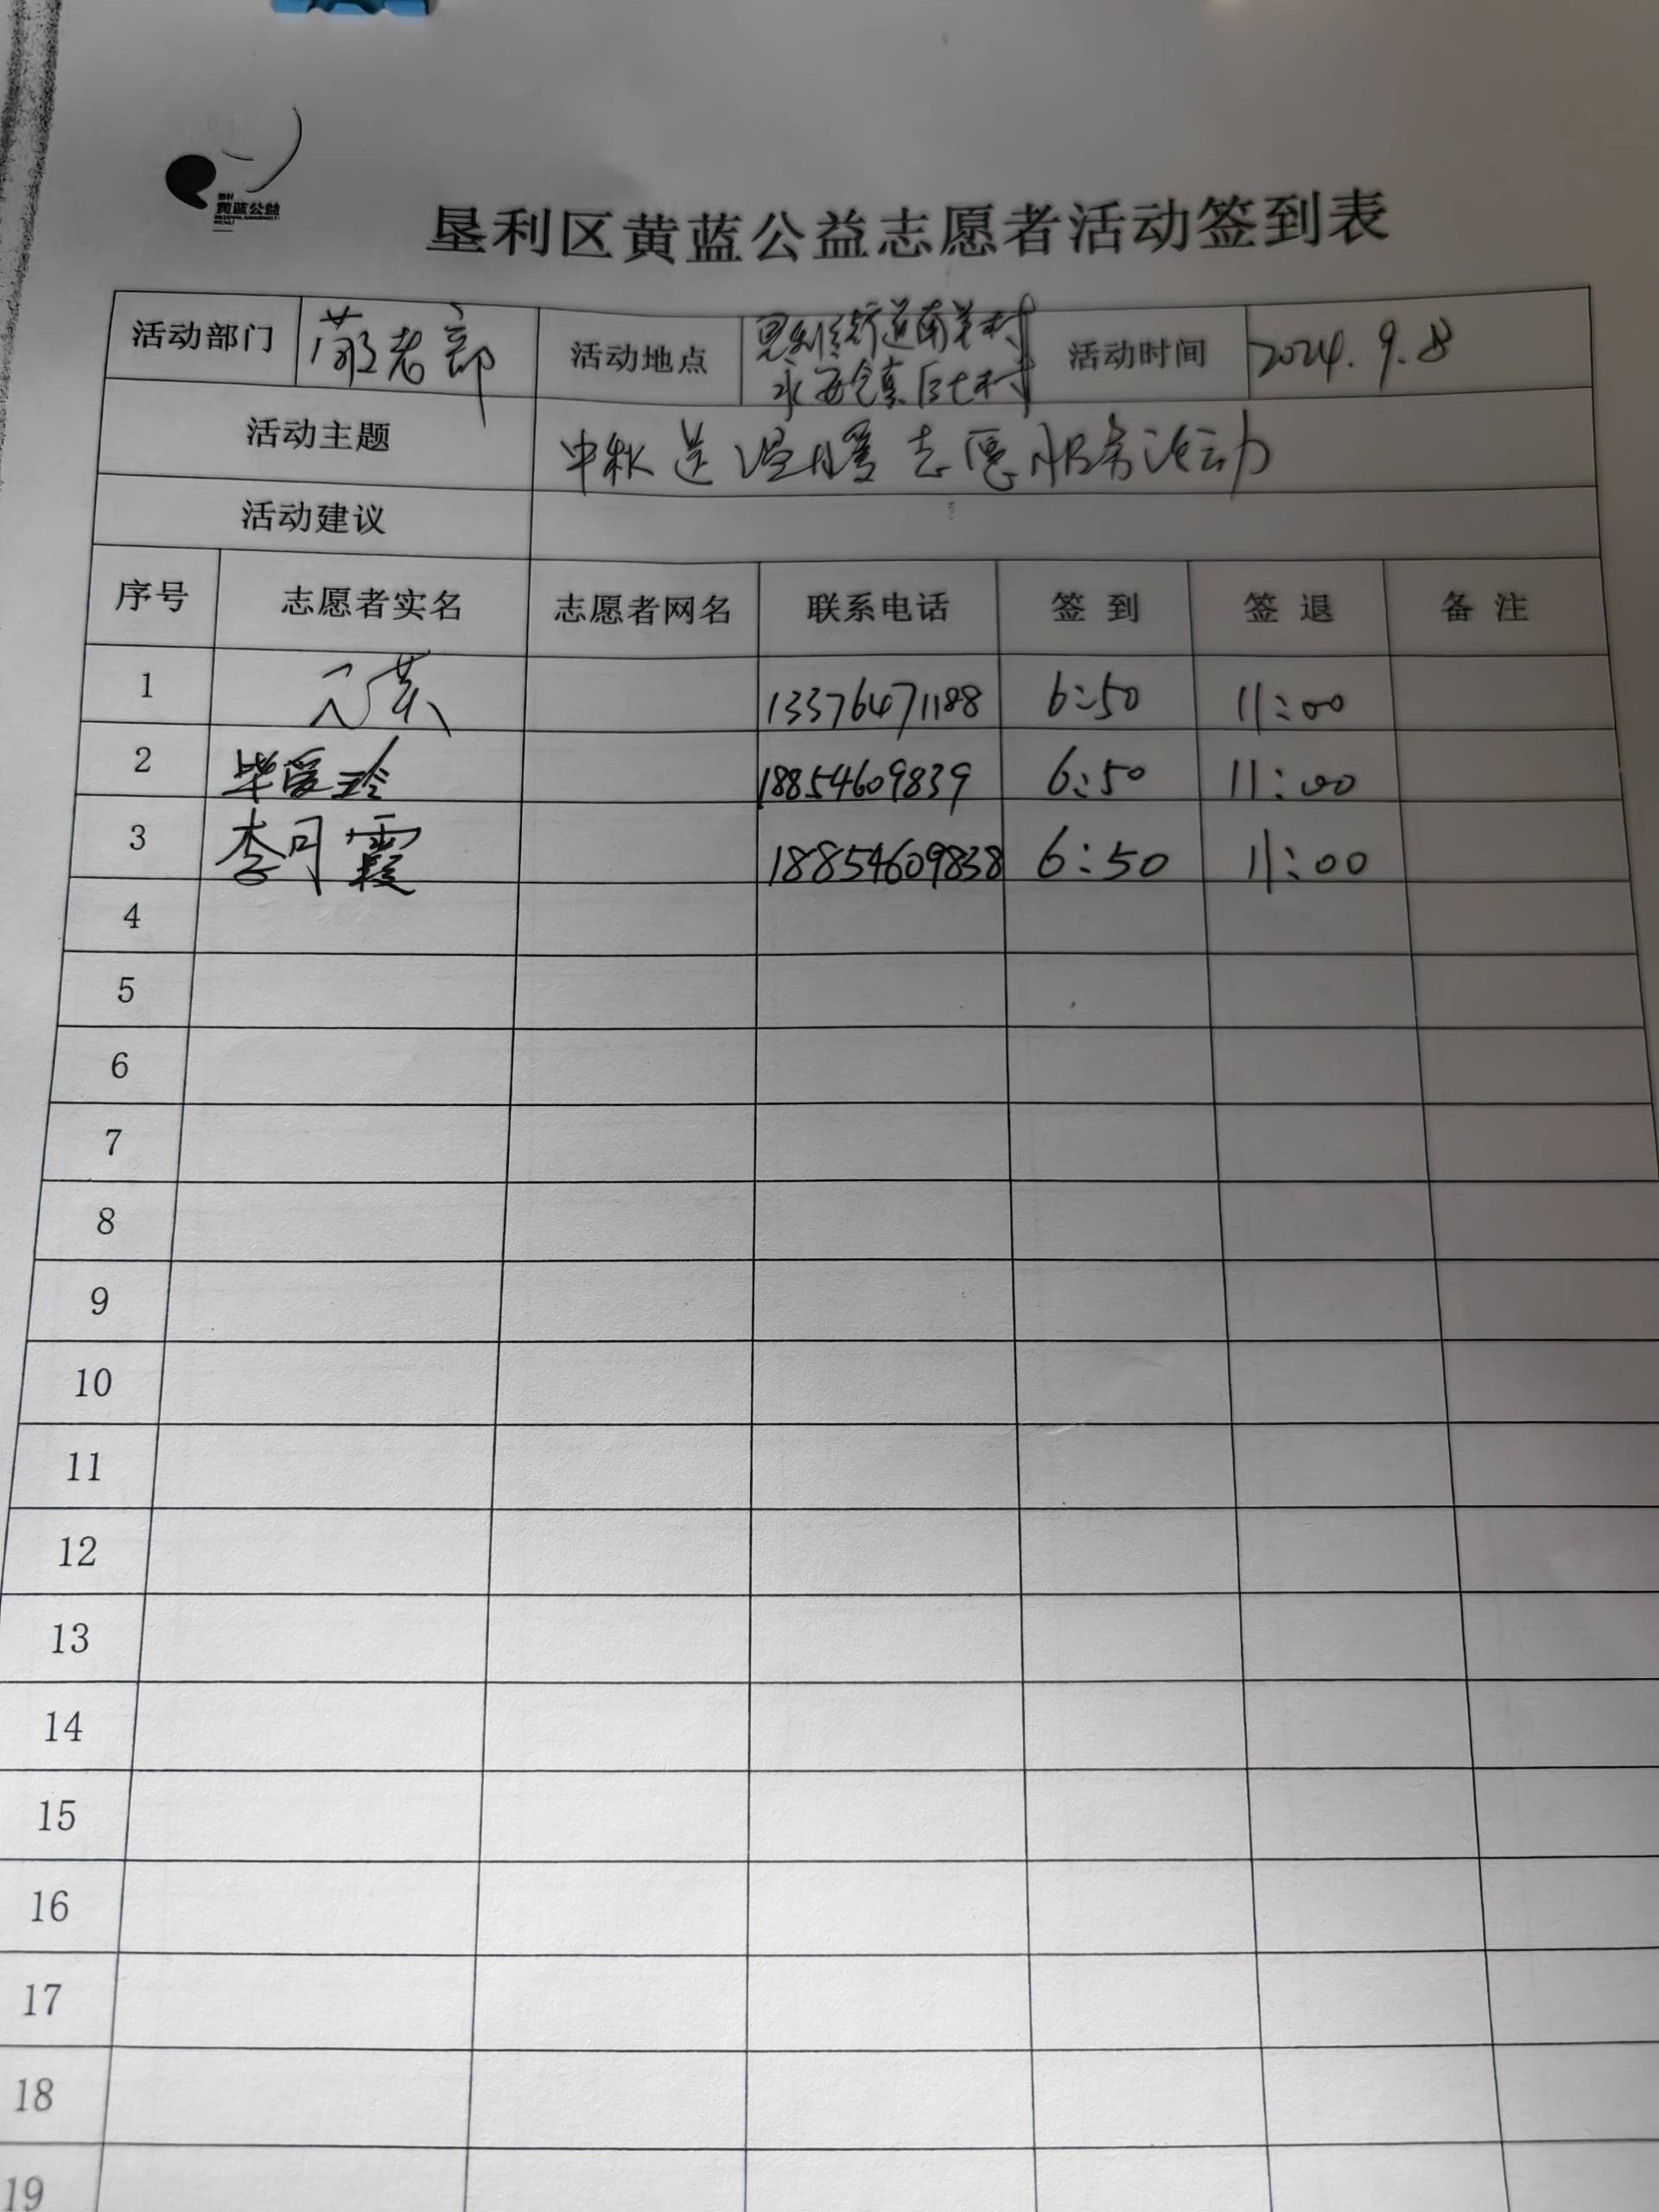 黄蓝公益
垦利区黄蓝公益志愿者活动签到表
活动部门 敬老部 活动地点 垦利街道南羊村 永安镇后七村 活动时间 2024.9.8
活动主题 中秋送温暖志愿服务活动
活动建议
序号 志愿者实名 志愿者网名 联系电话 签到 签退 备注
1 13376471188 6:50 11:00
2 毕爱玲 18854609839 6:50 11:00
3 李月霞 18854609838 6:50 11:00
4
5
6
7
8
9
10
11
12
13
14
15
16
17
18
19